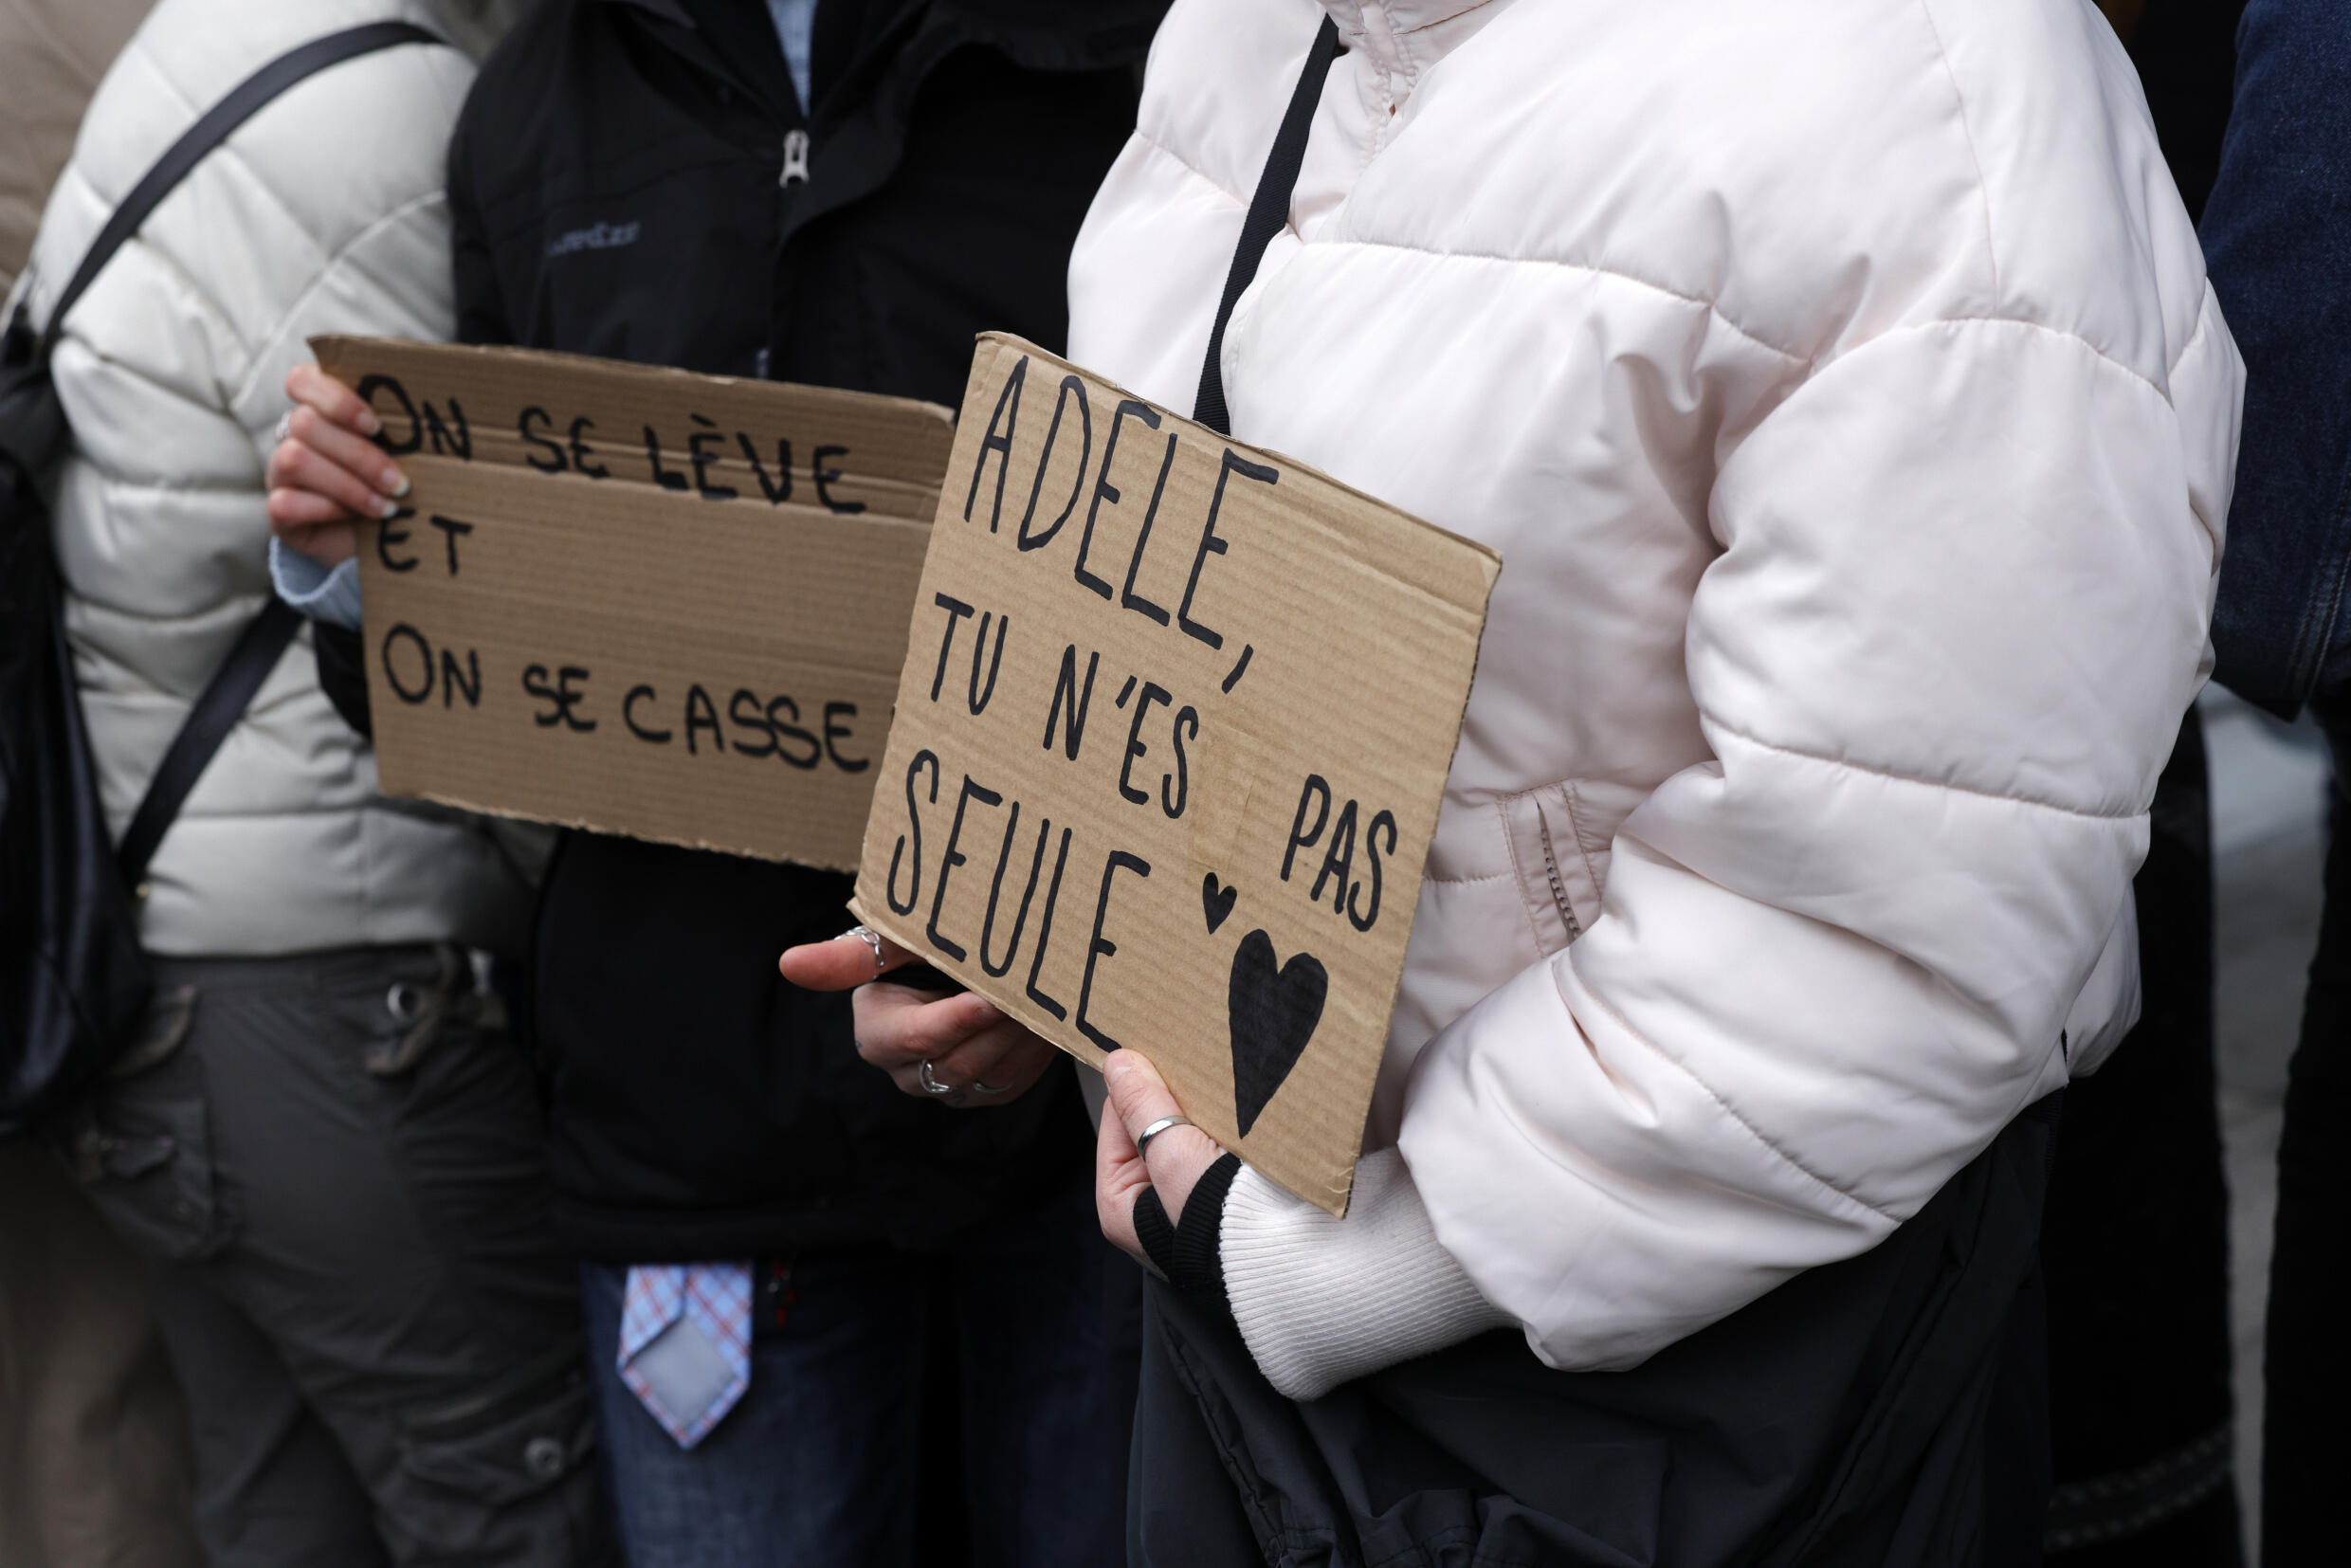 ON SE LÈVE
ET
ON SE CASSE
ADELE,
TU N'ES PAS
SEULE